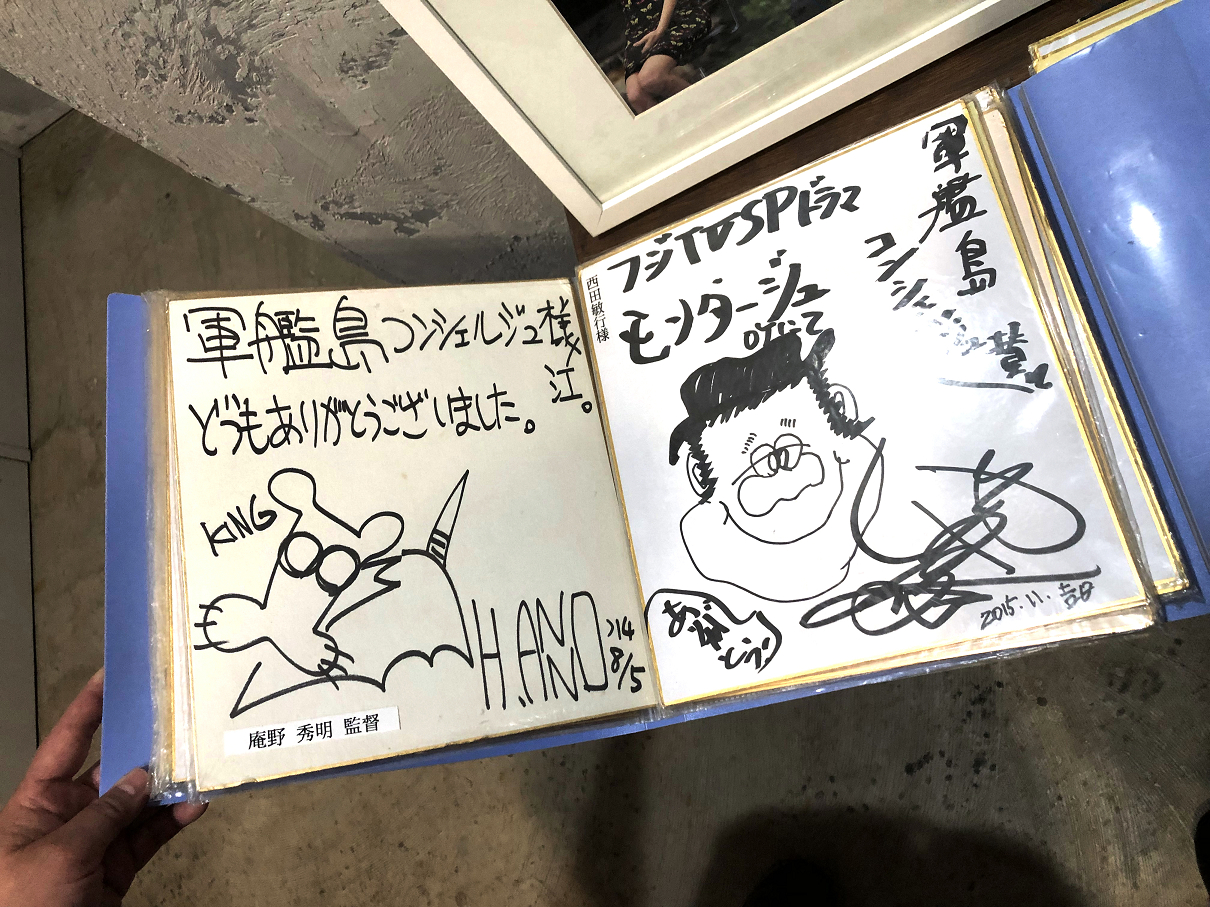 軍艦島コンシェルジュ様
江。
どうもありがとうございました。
KING
H.ANNO
'14
8/5
庵野 秀明 監督
西田敏行様
軍艦島
コンシェルジュ
賛江
フジTVSPドラマ
モンタージュ
にて
ありがとう
2015.11.吉日